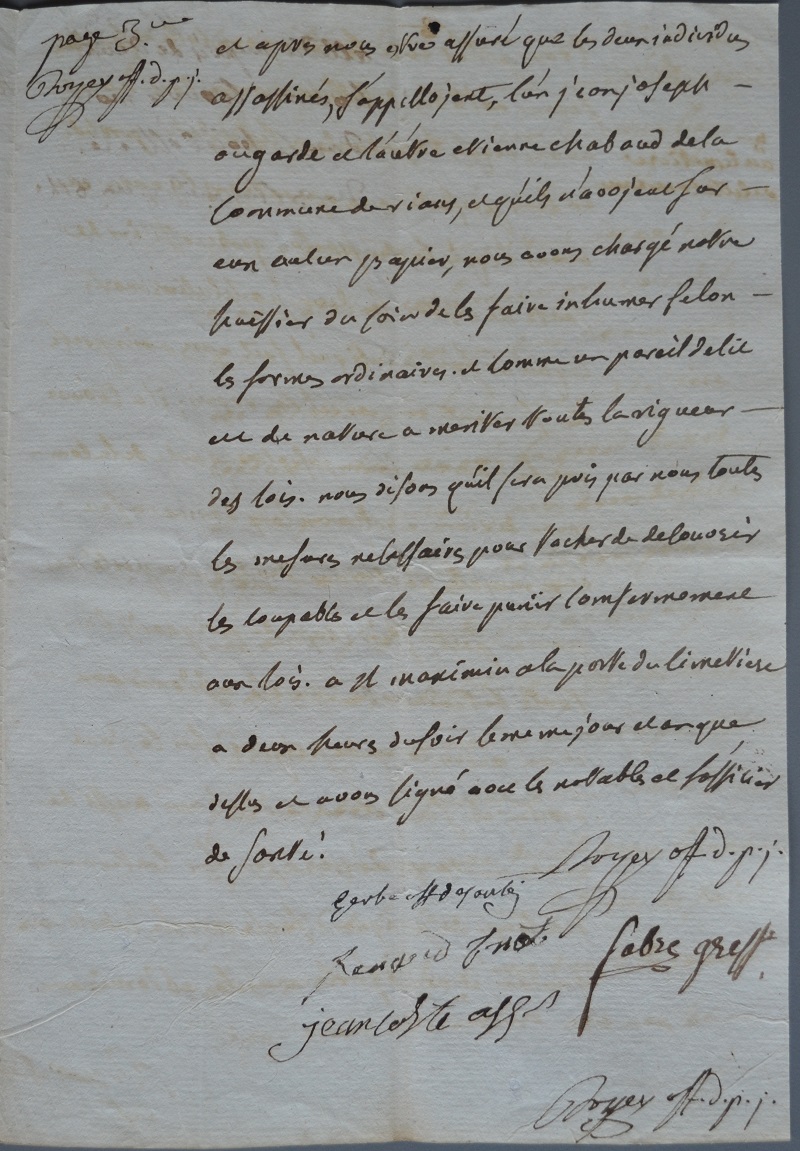 page 3.me
Boyer off. d. p. j.
et apres nous estre assuré que les deux individus
assassinés, s'appellojent, l'un jean joseph
ougarde et l'autre etienne chabaud de la
Commune de rians, et qu'ils n'avojent sur
eux aucun papier, nous avons chargé notre
huissier du soin de les faire inhumer selon
les formes ordinaires. et comme un pareil delit
est de nature a meriter toutes la rigueur
des lois. nous disons qu'il sera pris par nous toutes
les mesures necessaires pour tacher de decouvrir
les coupables et les faire punir conformement
aux lois. a st maximin a la porte du cimettiere
a deux heures du soir le meme jour et an que
dessus et avons signé avec les nottables et l'officier
de santé.
Boyer off. d. p. j.
off de santé
not
fabre greff.
jean coste ass
Boyer off. d. p. j.